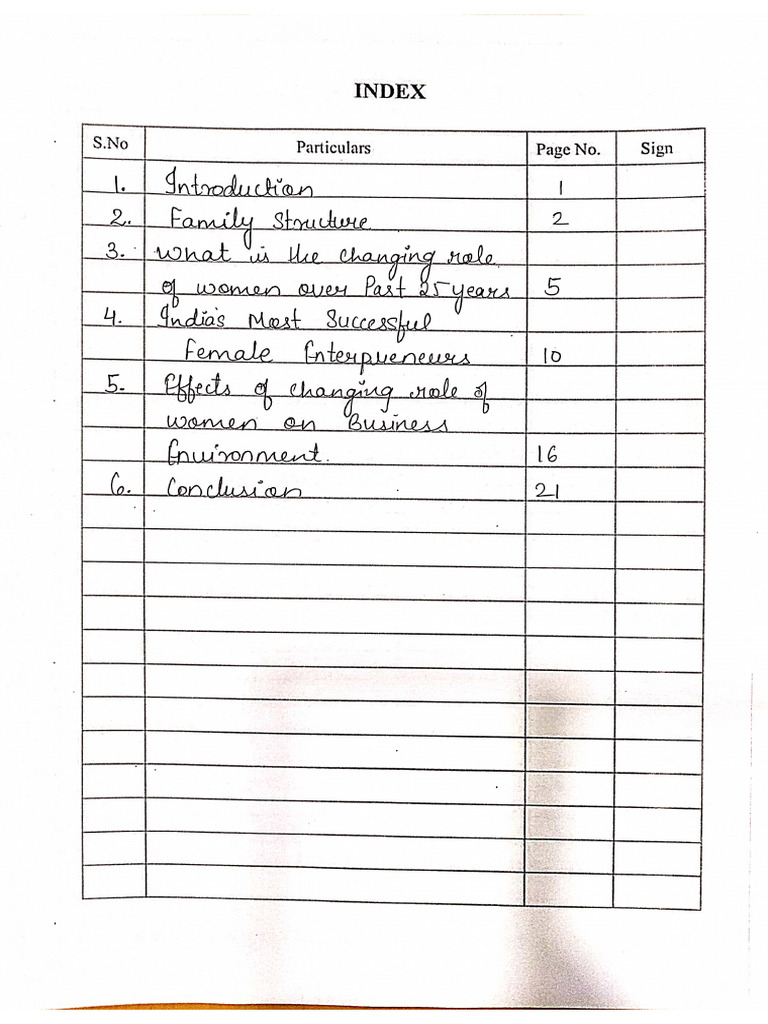 INDEX
S.No Particulars Page No. Sign
1. Introduction 1
2. Family Structure 2
3. What is the changing role
of women over Past 25 years 5
4. India's Most Successful
Female Enterpreneurs 10
5. Effects of changing role of
women on Business
Environment. 16
6. Conclusion 21